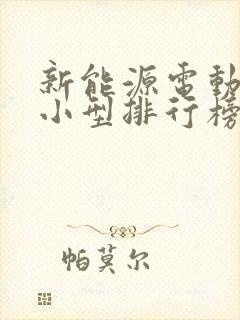 新能源電動
小型排行榜
帕莫尔